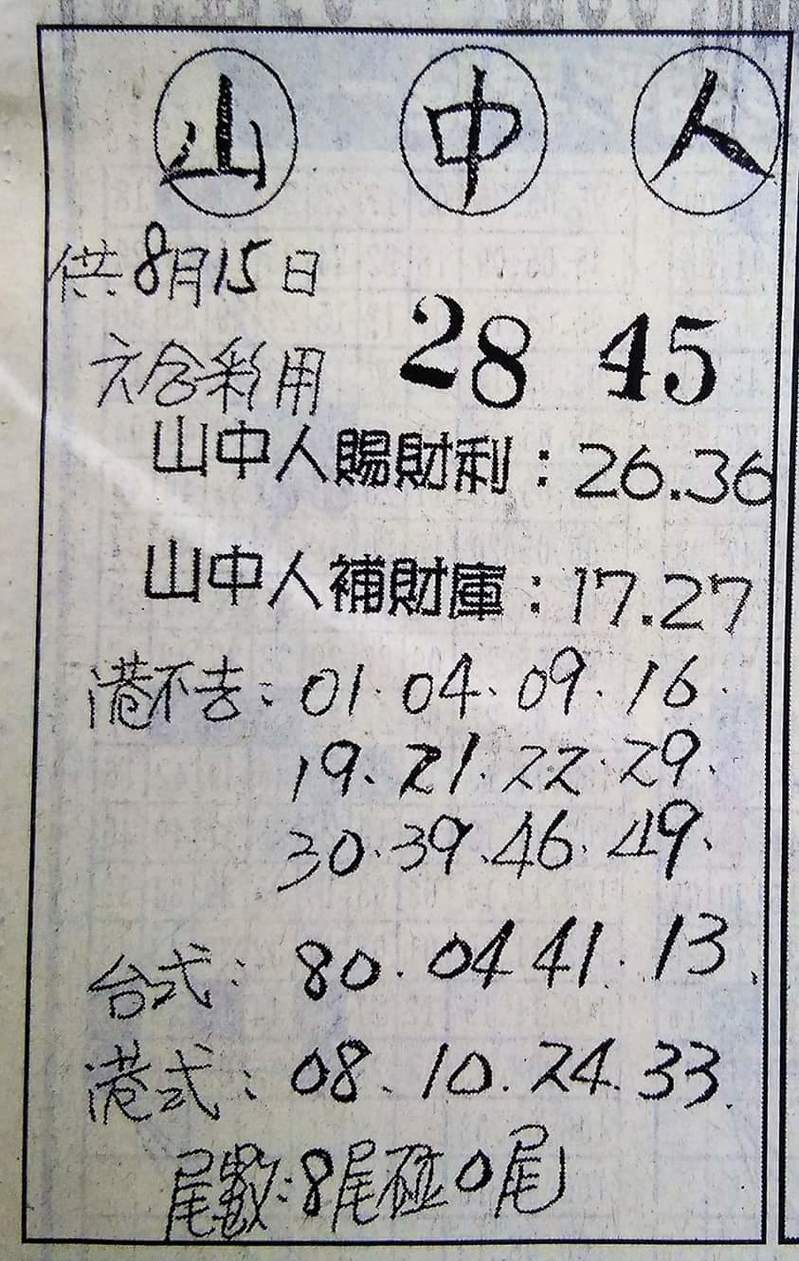 山 中 人
供8月15日
六合彩用 28 45
山中人賜財利：26.36
山中人補財庫：17.27
港不去：01.04.09.16.
19.21.22.29.
30.39.46.49.
台式：80.04 41.13.
港式：08.10.24.33.
尾數：8尾碰0尾